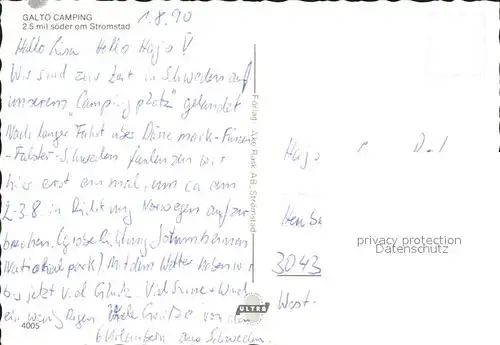 GALTÖ CAMPING
2.5 mil söder om Strömstad
1.8.90
Hallo Lisa Hallo Hajo!
Wir sind zur Zeit in Schweden auf
unserem "Campingplatz" gelandet
Nach langer Fahrt über Däne mark-Fünen
-Falster-Schweden faulenzen wir
hier erst einmal, um ca am
2-3.8. in Richtung Norwegen aufzu
brechen. (grobe Richtung Jotunheimen
Nationalpark). Mit dem Wetter haben wir
bis jetzt viel Glück. Viel Sonne + Wind
ein wenig Regen Viele Grüße von den
6 Urlaubern aus Schweden.
4005
Förlag: Åke Rask AB, Strömstad
ULTRA
Hajo
3043
West-
privacy protection
Datenschutz